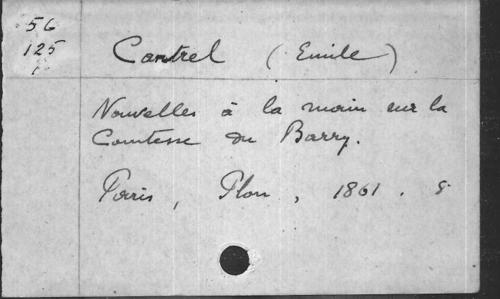 56
125
Cantrel (Emile)
Nouvelles à la main sur la
Comtesse du Barry.
Paris, Plon, 1861. 8